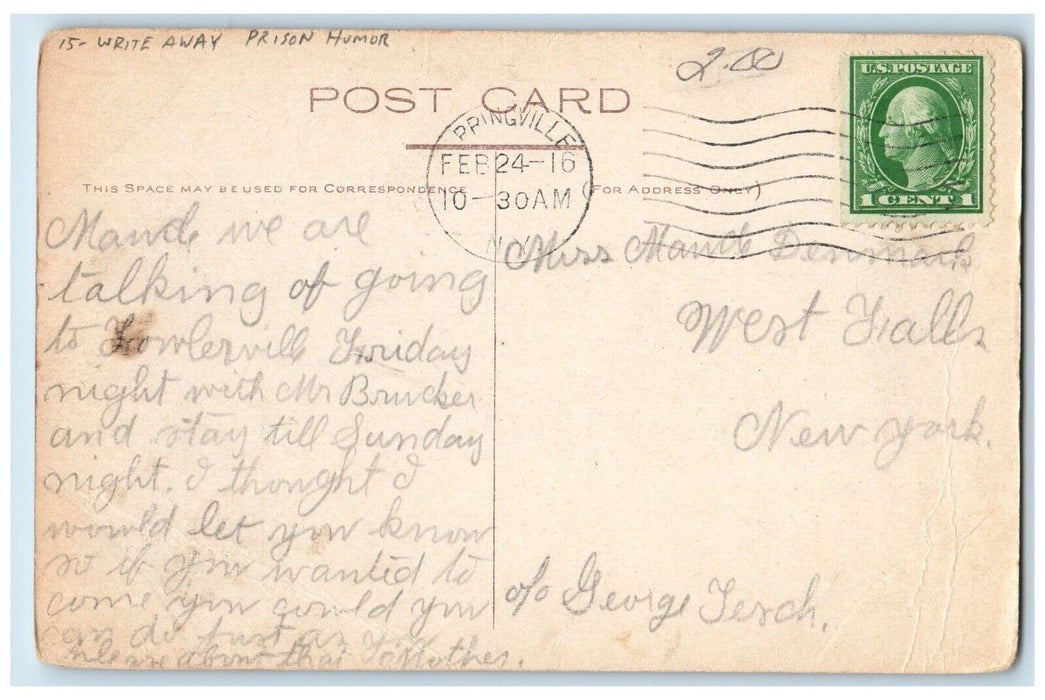 15- WRITE AWAY PRISON HUMOR
2.00
U.S. POSTAGE
1 CENT 1
POST CARD
PRINGVILLE
FEB 24-16
10-30AM
N.Y.
THIS SPACE MAY BE USED FOR CORRESPONDENCE
(FOR ADDRESS ONLY)
Maude we are
talking of going
to Fowlerville Friday
night with Mr Brucker
and stay till Sunday
night. I thought I
would let you know
so if you wanted to
come you could you
can do just as you
please about that Mother.
Miss Maude Denmark
West Falls
New York.
c/o George Tesch.